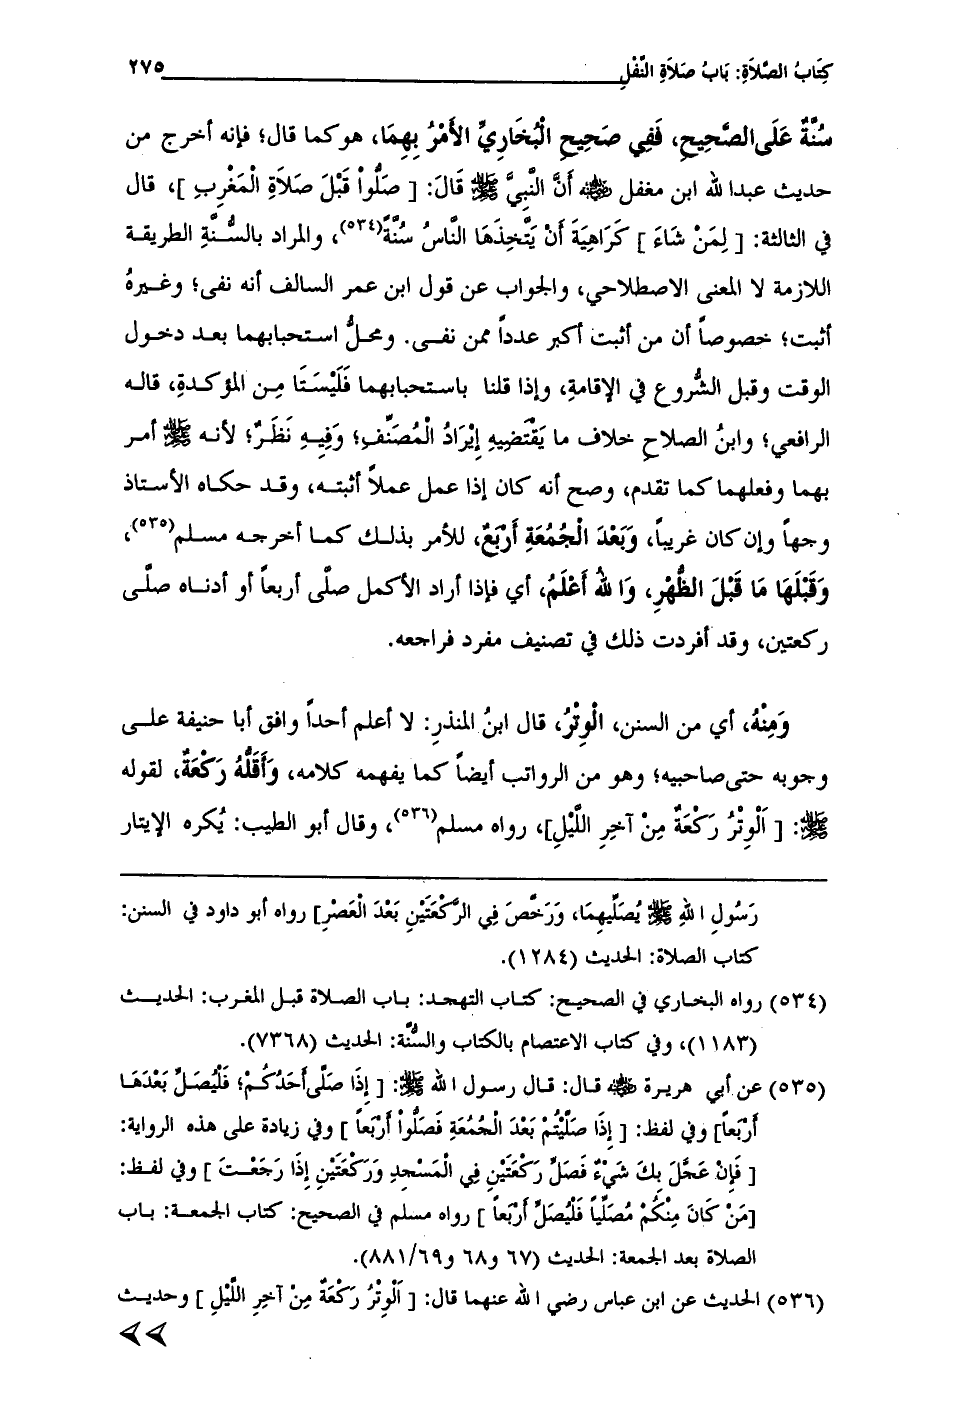 كِتَابُ الصَّلَاةِ: بَابُ صَلَاةِ النَّفْلِ ٢٧٥
سُنَّةٌ عَلَى الصَّحِيحِ، فَفِي صَحِيحِ الْبُخَارِيِّ الأَمْرُ بِهِمَا، هو كما قال؛ فإنه أخرج من
حديث عبدالله ابن مغفل ﷺ أَنَّ النَّبِيَّ ﷺ قَالَ: [ صَلُّواْ قَبْلَ صَلَاةِ الْمَغْرِبِ ]، قال
في الثالثة: [ لِمَنْ شَاءَ ] كَرَاهِيَةَ أَنْ يَتَّخِذَهَا النَّاسُ سُنَّةً(٥٣٤)، والمراد بالسُّنَّةِ الطريقة
اللازمة لا المعنى الاصطلاحي، والجواب عن قول ابن عمر السالف أنه نفى؛ وغيرهُ
أثبت؛ خصوصاً أن من أثبت أكبر عدداً ممن نفـى. ومحلُّ استحبابهما بعـد دخـول
الوقت وقبل الشُّروع في الإقامةِ، وإذا قلنا باستحبابهما فَلَيْسَتَا مِـن المؤكـدةِ، قالـه
الرافعي؛ وابنُ الصلاحِ خلاف ما يَقْتَضِيهِ إيْرَادُ الْمُصَنِّفِ؛ وَفِيـهِ نَظَرٌ؛ لأنـه ﷺ أمـر
بهما وفعلهما كما تقدم، وصح أنه كان إذا عمل عملاً أثبتـه، وقـد حكـاه الأسـتاذ
وجهاً وإن كان غريباً، وَبَعْدَ الْجُمُعَةِ أَرْبَعٌ، للأمر بذلـك كمـا أخرجـه مسـلم(٥٣٥)،
وَقَبْلَهَا مَا قَبْلَ الظُّهْرِ، وَا للهُ أَعْلَمُ، أي فإذا أراد الأكمل صلَّى أربعاً أو أدنـاه صلَّـى
ركعتين، وقد أفردت ذلك في تصنيف مفرد فراجعه.
وَمِنْهُ، أي من السنن، الْوِتْرُ، قال ابنُ المنذرِ: لا أعلم أحداً وافق أبا حنيفة علـى
وجوبه حتى صاحبيه؛ وهو من الرواتب أيضاً كما يفهمه كلامه، وَأَقَلُّهُ رَكْعَةٌ، لقوله
ﷺ: [ اَلْوِتْرُ رَكْعَةٌ مِنْ آخِرِ اللَّيْلِ]، رواه مسلم(٥٣٦)، وقال أبو الطيب: يُكره الإيتار
رَسُولِ ا للهِ ﷺ يُصَلِّيهِمَا، وَرَخَّصَ فِي الرَّكْعَتَيْنِ بَعْدَ الْعَصْرِ] رواه أبو داود في السنن:
كتاب الصلاة: الحديث (١٢٨٤).
(٥٣٤) رواه البخاري في الصحيح: كتـاب التهجـد: بـاب الصـلاة قبـل المغرب: الحديـث
(١١٨٣)، وفي كتاب الاعتصام بالكتاب والسُّنَّة: الحديث (٧٣٦٨).
(٥٣٥) عن أبي هريرة قـال: قـال رسـول ا لله ﷺ: [ إِذَا صَلَّى أَحَدُكُمْ؛ فَلْيُصَلِّ بَعْدَهَـا
أَرْبَعاً] وفي لفظ: [ إِذَا صَلَّيْتُمْ بَعْدَ الْجُمُعَةِ فَصَلُّواْ أَرْبَعاً ] وفي زيادة على هذه الرواية:
[ فَإِنْ عَجَّلَ بِكَ شَيْءٌ فَصَلِّ رَكْعَتَيْنِ فِي الْمَسْجِدِ وَرَكْعَتَيْنِ إِذَا رَجَعْـتَ ] وفي لفـظ:
[مَنْ كَانَ مِنْكُمْ مُصَلِّياً فَلْيُصَلِّ أَرْبَعاً ] رواه مسلم في الصحيح: كتاب الجمعـة: بـاب
الصلاة بعد الجمعة: الحديث (٦٧ و٦٨ و٨٨١/٦٩).
(٥٣٦) الحديث عن ابن عباس رضي ا لله عنهما قال: [ اَلْوِتْرُ رَكْعَةٌ مِنْ آخِرِ اللَّيْلِ ] وحديـث